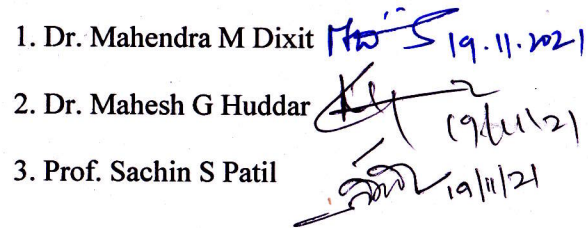 1. Dr. Mahendra M Dixit 19.11.2021
2. Dr. Mahesh G Huddar 19/11/21
3. Prof. Sachin S Patil 19/11/21